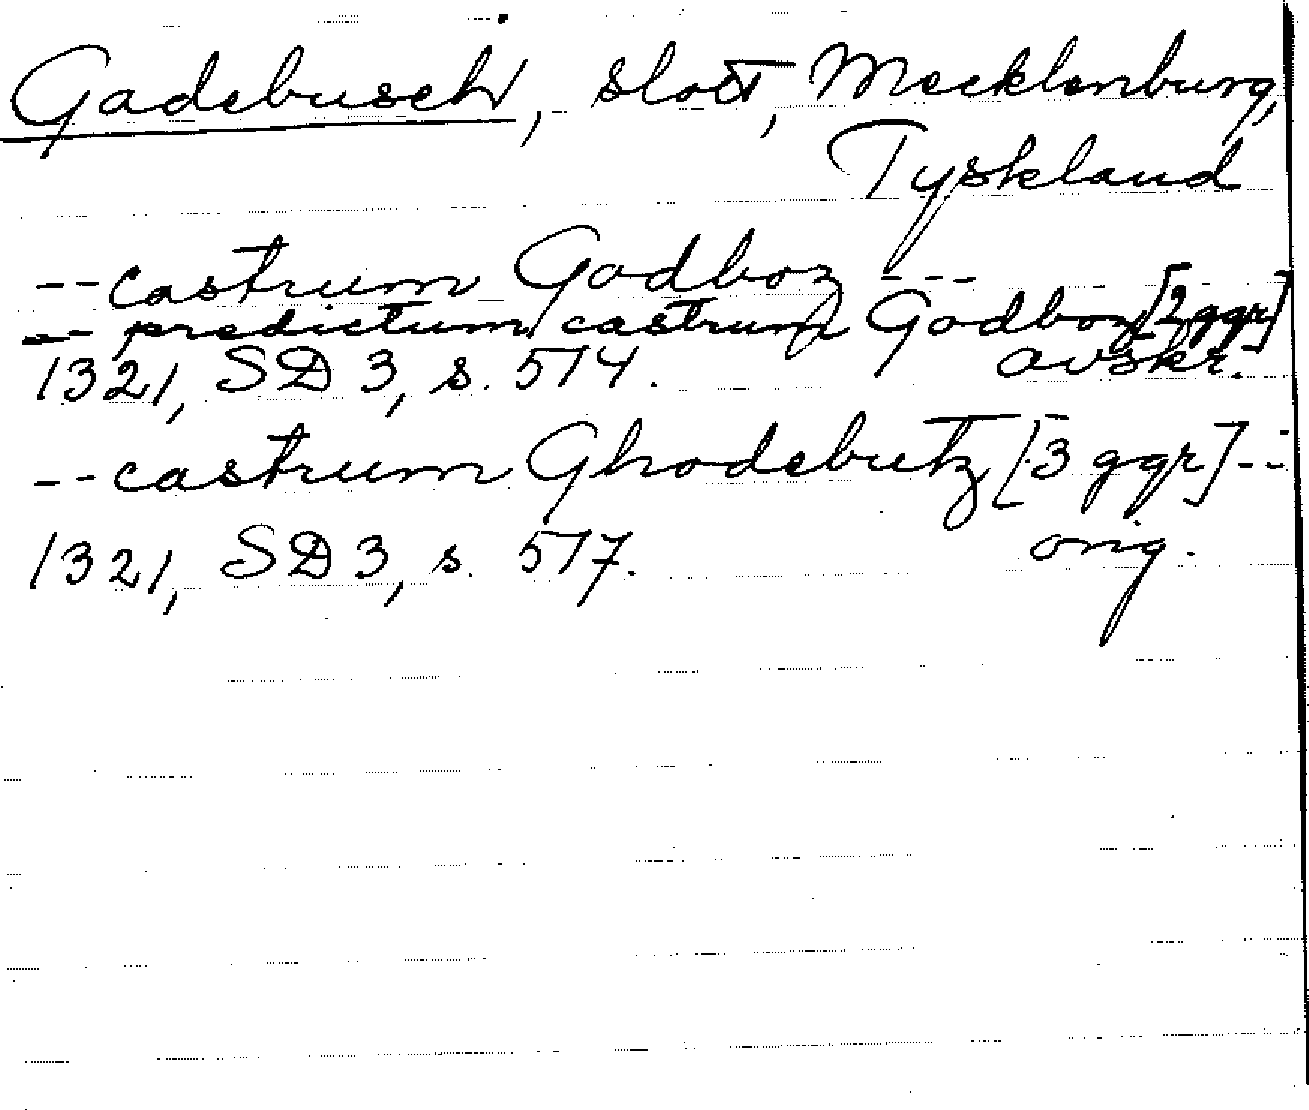 Gadebusch, slott, Mecklenburg,
Tyskland
-- castrum Godboz ---
-- predictum castrum Godboz [2 ggr]
1321, SD 3, s. 514. avskr.
-- castrum Ghodebutz [3 ggr] --
1321, SD 3, s. 517. orig.